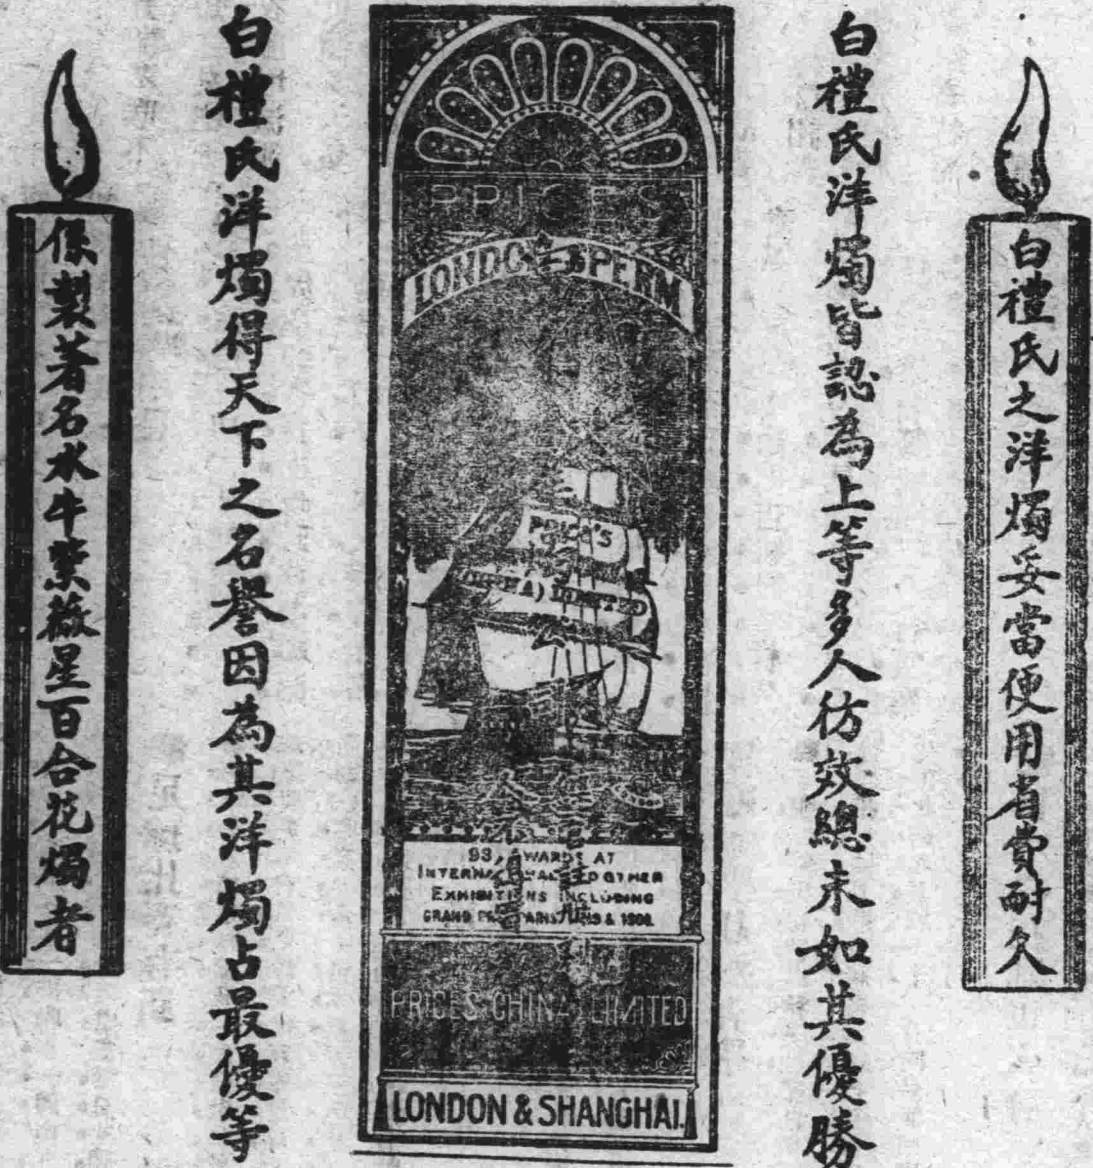 白禮氏之洋燭妥當使用省費耐久
白禮氏洋燭皆認為上等多人彷效總未如其優勝
PRICES
LONDON SPERM
PRICE'S
(CHINA) LIMITED
93 AWARDS AT
INTERNATIONAL AND OTHER
EXHIBITIONS INCLUDING
GRAND PRIX PARIS & 1908.
PRICES CHINA LIMITED
LONDON & SHANGHAI.
白禮氏洋燭得天下之名譽因為其洋燭占最優等
係製著名水牛紫薇星百合花燭者